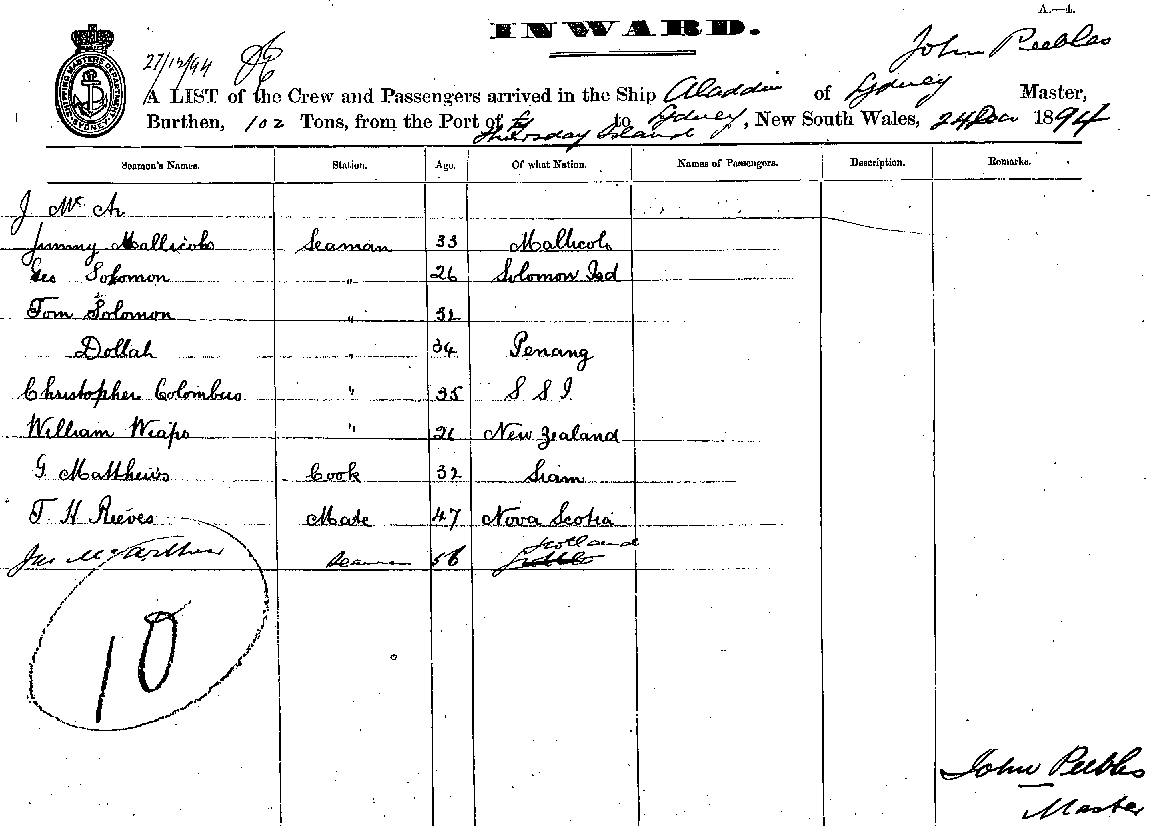 A.—4.
INWARD.
27/12/94
John Peebles
A LIST of the Crew and Passengers arrived in the Ship Aladdin of Sydney Master,
Burthen, 102 Tons, from the Port of Thursday Island to Sydney, New South Wales, 24 Dec 1894
Seamen's Names. Station. Age. Of what Nation. Names of Passengers. Description. Remarks.
J Mc Ar
Jimmy Mallicolo Seaman 33 Mallicolo
Geo Solomon " 26 Solomon Isd
Tom Solomon " 32
Dollah " 34 Penang
Christopher Colombus " 35 S S I
William Weapo " 26 New Zealand
G Matthews Cook 32 Siam
T H Reeves Mate 47 Nova Scotia
Jas McArthur Seaman 56 Scotland
10
John Peebles
Master